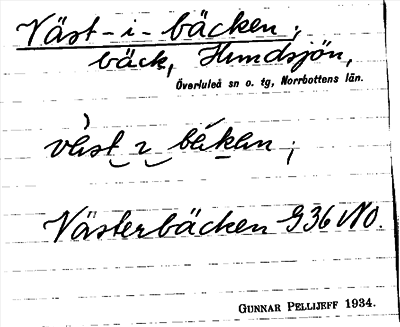 Väst-i-bäcken;
bäck, Hundsjön,
Överluleå sn o. tg, Norrbottens län.
Västerbäcken G36 NO.
GUNNAR PELLIJEFF 1934.